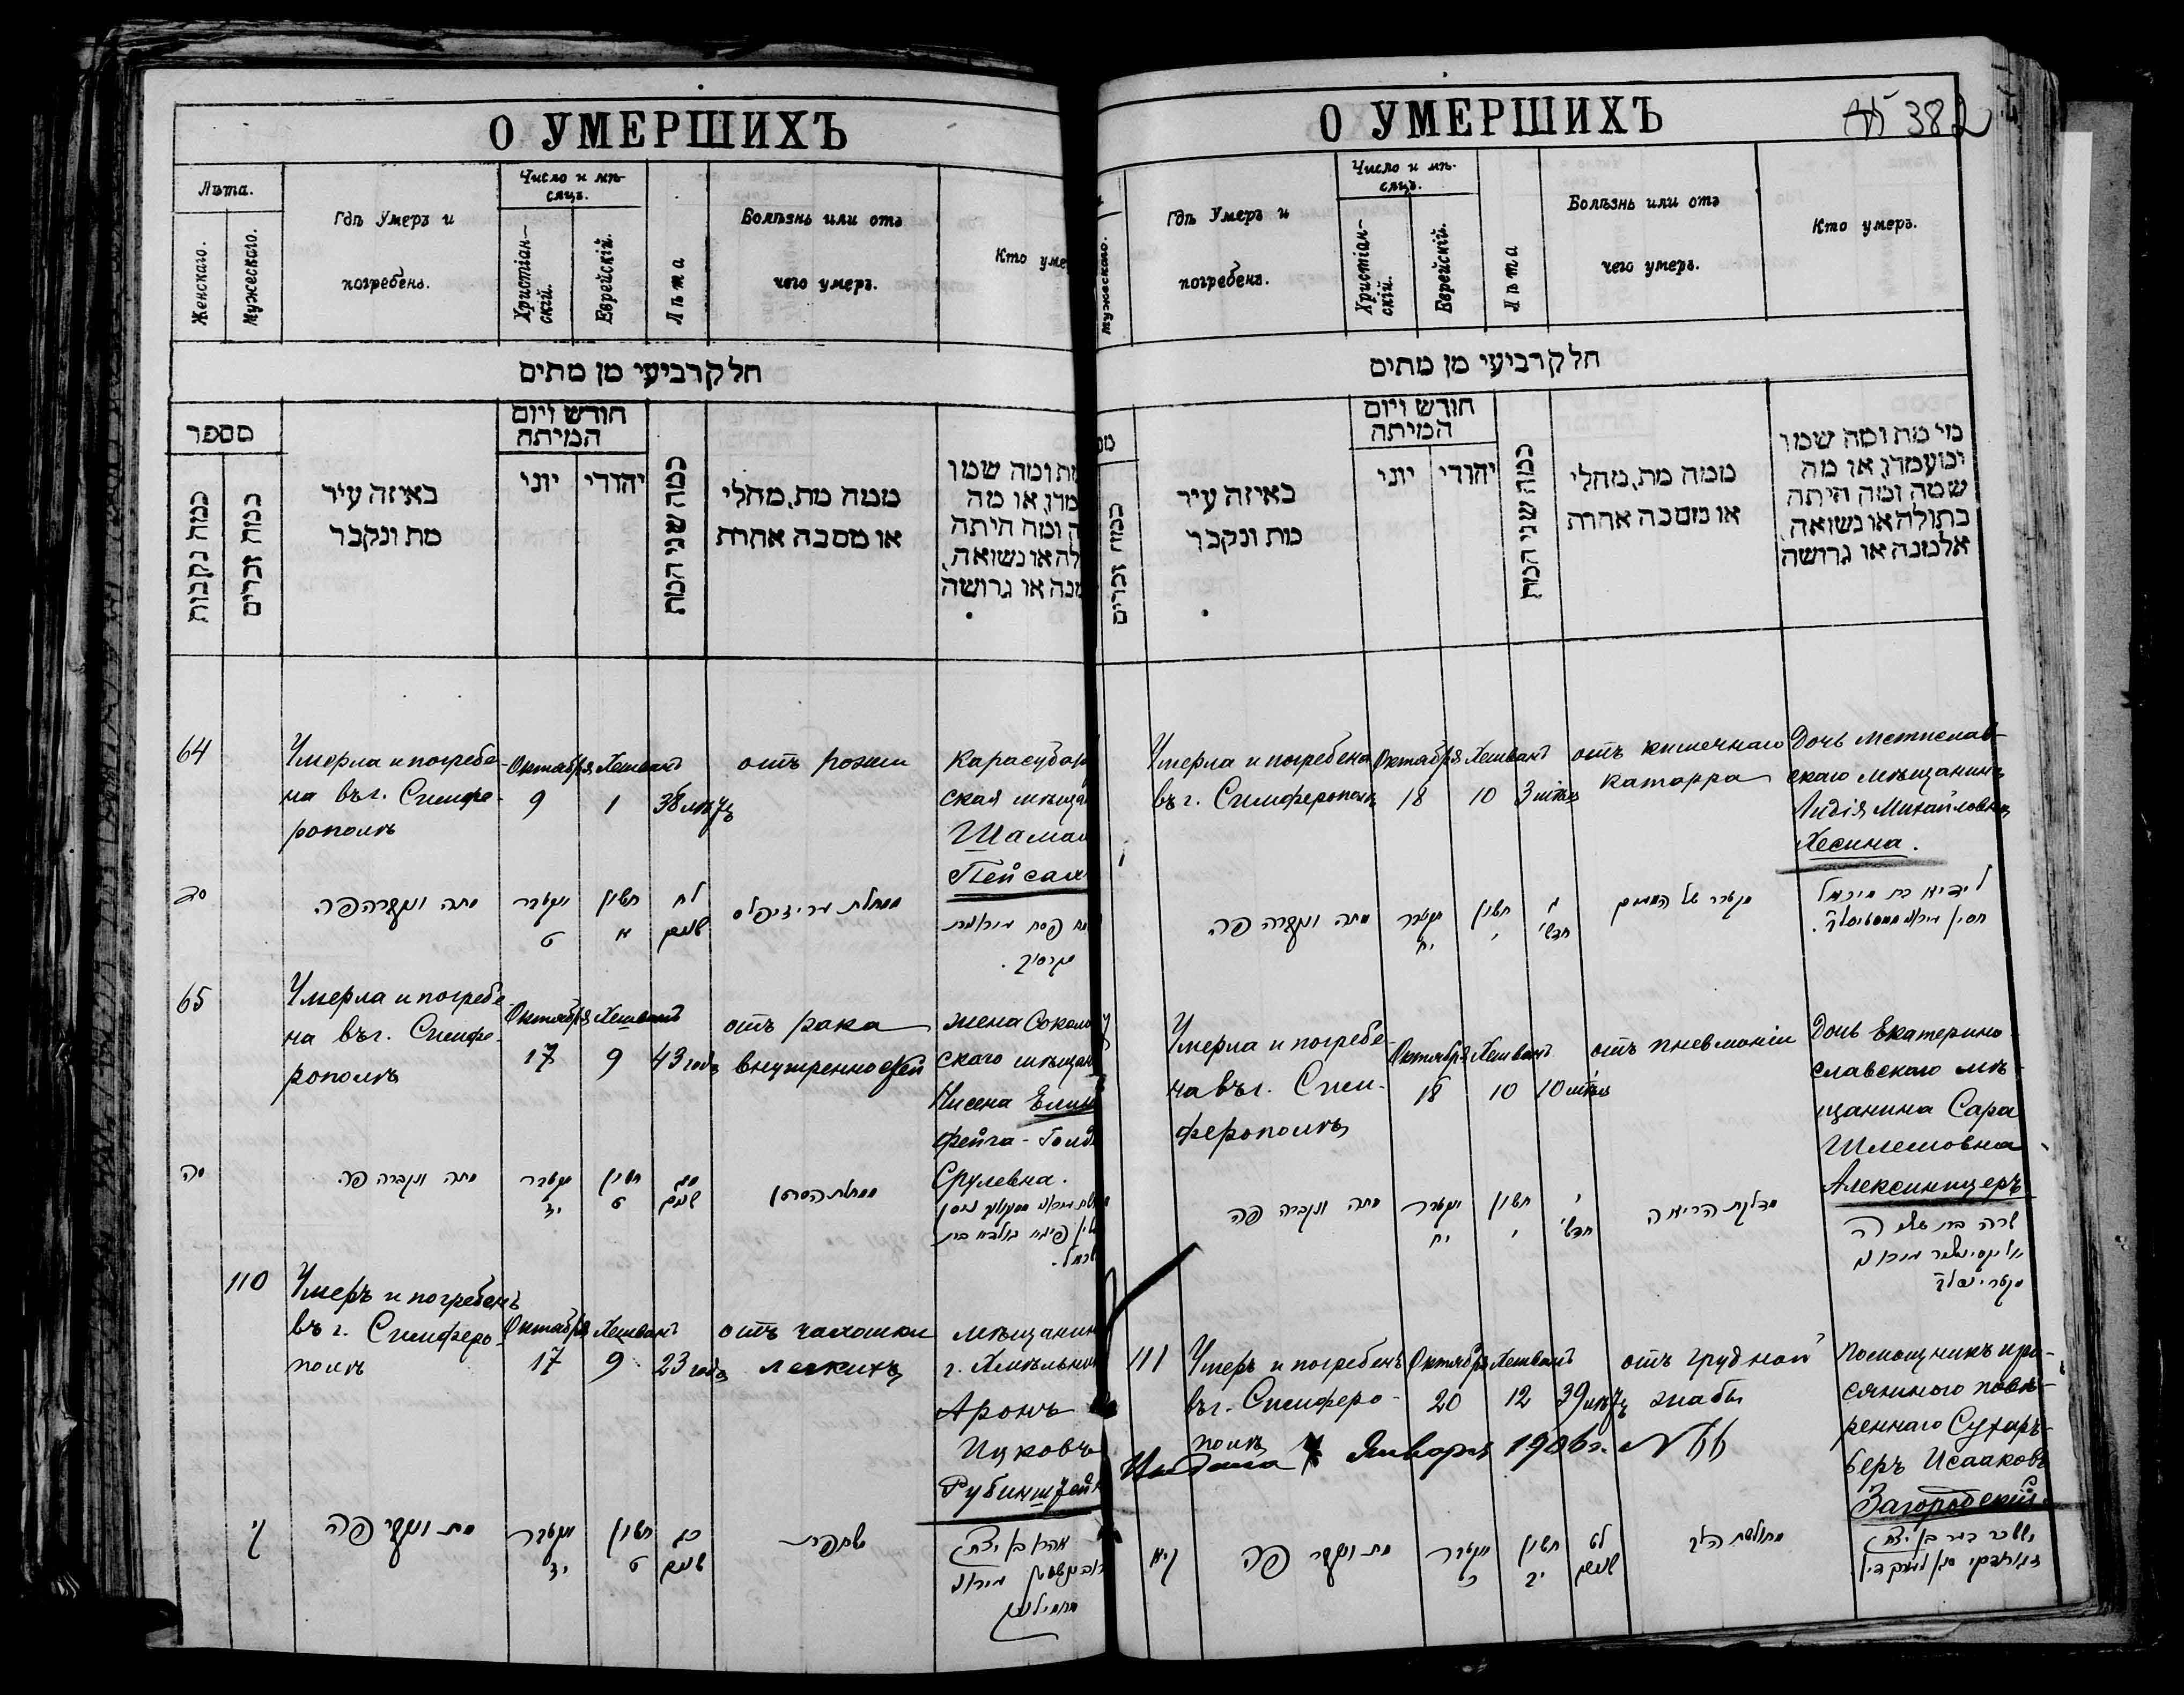 О УМЕРШИХЪ
Лѣта.
Женскаго.
Мужескаго.
Гдѣ Умеръ и
погребенъ.
Число и мѣ-
сяцъ.
Христіан-
скій.
Еврейскій.
Лѣта
Болѣзнь или отъ
чего умеръ.
Кто уме
חלק רביעי מן מתים
מספר
כמה נקבות
כמה זכרים
באיזה עיר
מת ונקבר
חודש ויום
המיתה
יוני
יהודי
כמה שני המת
ממה מת, מחלי
או מסבה אחרת
מת ומה שמו
מדו, או מה
ה ומה היתה
לה או נשואה,
מנה או גרושה
64
Умерла и погребе-
на въ г. Симфе-
рополѣ
Октября
9
Хешванъ
1
38 лѣтъ
отъ рожи
Карасубар
ская мѣщан
Шамаи
Пейсах
סד
מתה ונקברה פה
אקטבר
ט
חשון
א
לח
שנים
65
Умерла и погребе-
на въ г. Симфе-
рополѣ
Октября
17
Хешванъ
9
43 года
отъ рака
внутренностей
жена Соколь
скаго мѣщан
Нисена
Фейга-Голд
Срулевна.
סה
מתה ונקברה פה
אקטבר
יז
חשון
ט
מג
שנים
מחלת הסרטן
110
Умеръ и погребенъ
въ г. Симферо-
полѣ
Октября
17
Хешванъ
9
23 года
отъ чахотки
легкихъ
мѣщанин
г. Хмѣльни
Аронъ
Ицковъ
Рубинштейн
קי
מת ונקבר פה
אקטבר
יז
חשון
ט
כג
שנים
שחפת
אהרן בן יצחק
О УМЕРШИХЪ
382
Мужескаго.
Гдѣ Умеръ и
погребенъ.
Число и мѣ-
сяцъ.
Христіан-
скій.
Еврейскій.
Лѣта
Болѣзнь или отъ
чего умеръ.
Кто умеръ.
חלק רביעי מן מתים
כמה זכרים
באיזה עיר
מת ונקבר
חודש ויום
המיתה
יוני
יהודי
כמה שני המת
ממה מת, מחלי
או מסבה אחרת
מי מת ומה שמו
ומעמדו, או מה
שמה ומה היתה
בתולה או נשואה,
אלמנה או גרושה
Умерла и погребена
въ г. Симферополѣ
Октября
18
Хешванъ
10
отъ кишечнаго
катарра
Дочь Мстислав-
скаго мѣщанина
Лидія Михайловна
Хесина.
מתה ונקברה פה
אקטבר
יח
חשון
י
חדשי
לידיא בת מיכאל
Умерла и погребе-
на въ г. Сим-
ферополѣ
Октября
18
Хешванъ
10
отъ пневмоніи
Дочь Екатерино-
славскаго мѣ-
щанина Сара
Шлемовна
Алексинцеръ
מתה ונקברה פה
אקטבר
יח
חשון
י
י
חדשי
מדלקת הריאה
שרה בת שלמה
111
Умеръ и погребенъ
въ г. Симферо-
полѣ
Октября
20
Хешванъ
12
39 лѣтъ
отъ грудной
жабы
Помощникъ при-
сяжнаго повѣ-
реннаго Сухаръ-
беръ Исааковъ
Загородскій.
Января 1906 г.
קיא
מת ונקבר פה
אקטבר
כ
חשון
יב
לט
שנים